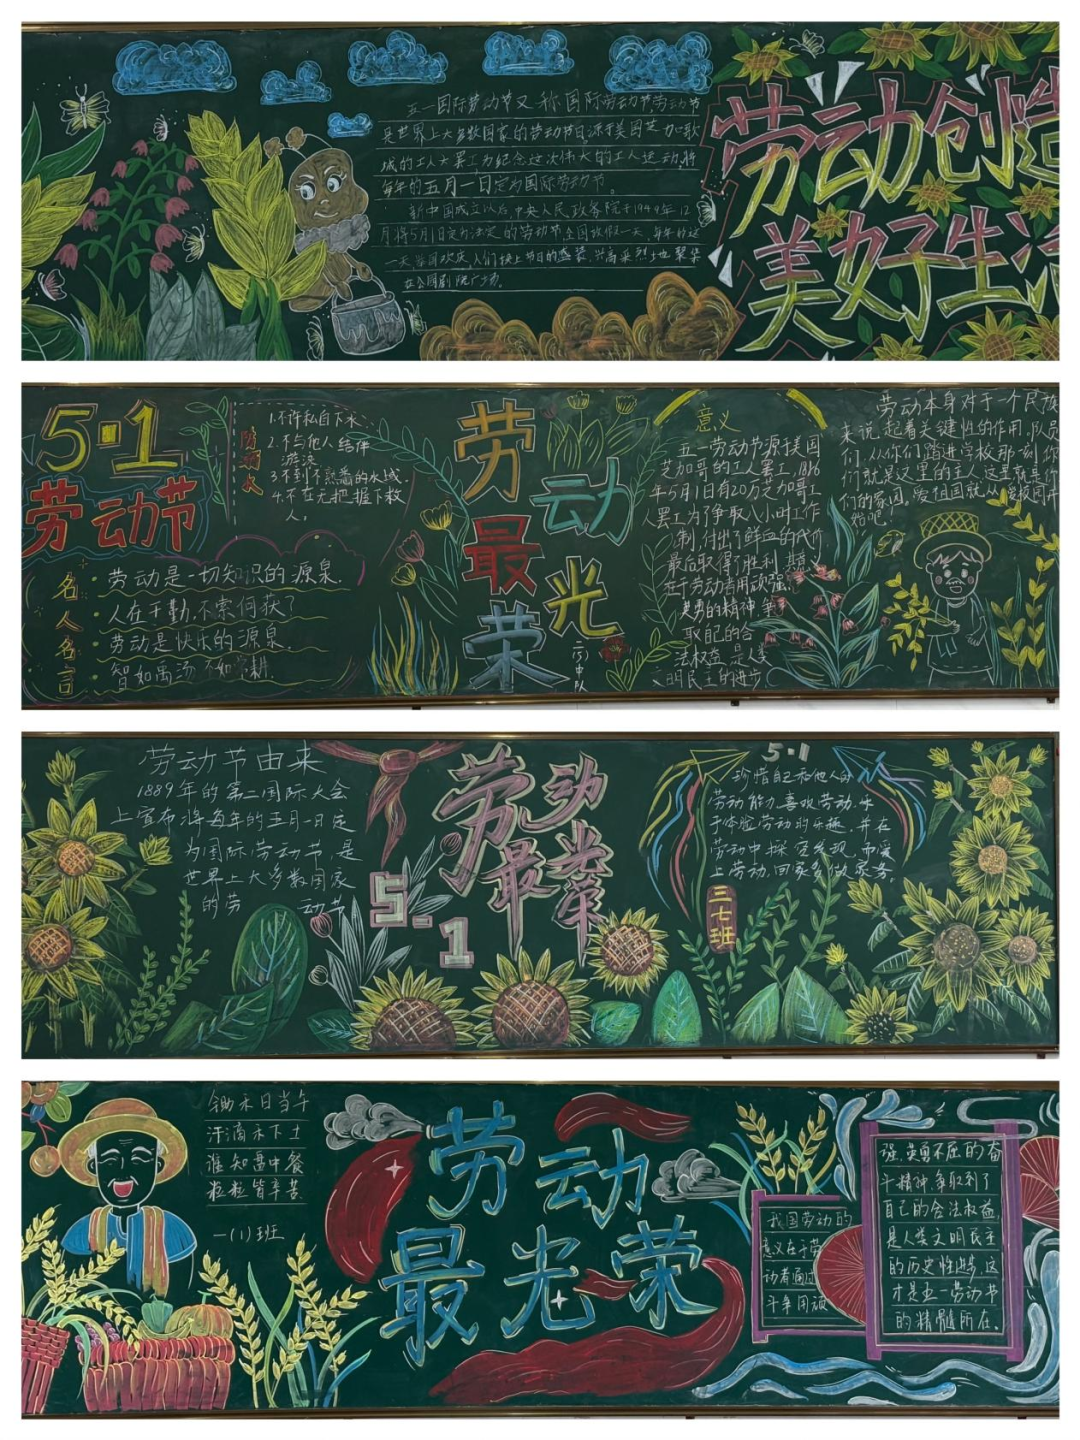 五一国际劳动节又称国际劳动节劳动节
是世界上大多数国家的劳动节日源于美国芝加歌
城的工人大罢工为纪念这次伟大的工人运动,将
每年的五月一日定为国际劳动节。
新中国成立以后,中央人民政务院于1949年12
月将5月1日定为法定的劳动节全国放假一天,每年的这
一天,举国欢庆人们换上节日的盛装,兴高采烈地聚集
在公园剧院广场。
劳动创造
美好生活
5·1
劳动节
防溺水
1.不许私自下水、
2.不与他人结伴
游泳
3.不到不熟悉的水域.
4.不在无把握下救
人。
名人名言
劳动是一切知识的源泉.
人在于勤,不索何获?
劳动是快乐的源泉.
智如禹汤不如常耕.
劳动
最光
荣
二(5)中队
意义
五一劳动节源于美国
芝加哥的工人罢工,1886
年5月1日有20万芝加哥工
人罢工为了争取八小时工作
制,付出了鲜血的代价
最后取得了胜利.其意
在于劳动者用顽强、
英勇的精神争
取自己的合
法权益,是人类
文明民主的进步
劳动本身对于一个民族
来说起着关键性的作用.队员
们,从你们踏进学校那一刻,你
们就是这里的主人这里就是你
们的家园,爱祖国就从爱校园开
始吧.
劳动节由来
1889年的第二国际大会
上宣布将每年的五月一日定
为国际劳动节,是
世界上大多数国家
的劳动节
劳动
最光荣
5-1
5·1
珍惜自己和他人的
劳动能力喜欢劳动,乐
于体验劳动的乐趣,并在
劳动中探究发现,而爱
上劳动.回家多做家务.
三七班
锄禾日当午
汗滴禾下土
谁知盘中餐
粒粒皆辛苦
一(1)班
劳动
最光荣
我国劳动的
意义在于劳
动者通过
斗争用顽
强、英勇不屈的奋
斗精神,争取到了
自己的合法权益,
是人类文明民主
的历史性进步,这
才是五一劳动节
的精髓所在.